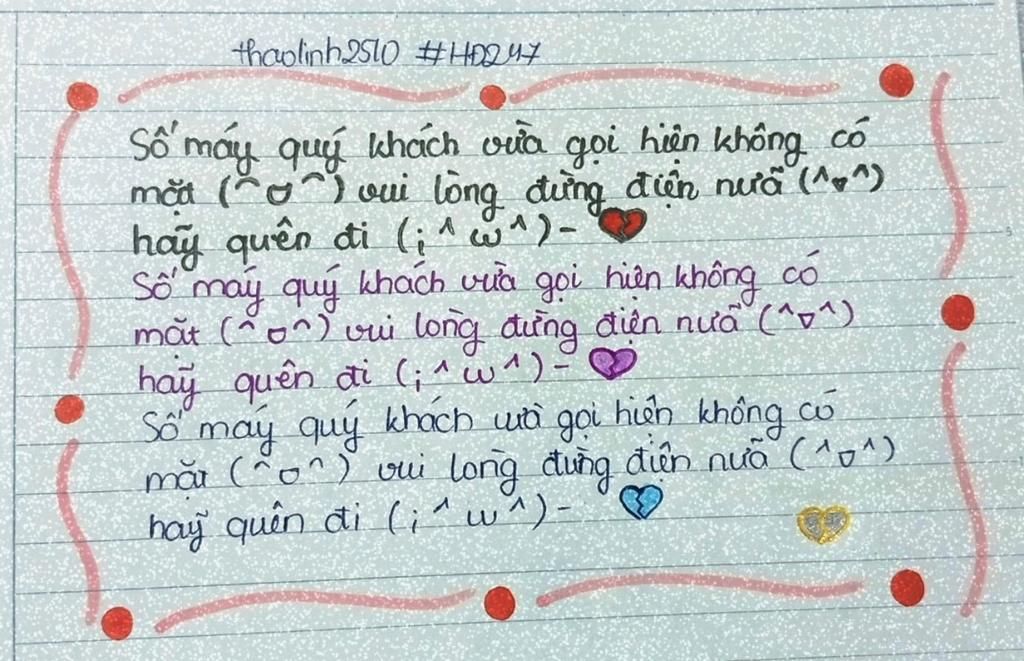 thaolinh2510 #HD247
Số máy quý khách vừa gọi hiện không có
mặt (^ ▽ ^) vui lòng đừng điện nưã (^▽^)
haỹ quên đi (¡ ^ ω ^) - 💔
Số máy quý khách vừa gọi hiện không có
mặt (^ ▽ ^) vui lòng đừng điện nưã (^▽^)
haỹ quên đi (¡ ^ ω ^) - 💔
Số máy quý khách vừa gọi hiện không có
mặt (^ ▽ ^) vui lòng đừng điện nưã (^▽^)
haỹ quên đi (¡ ^ ω ^) - 💔